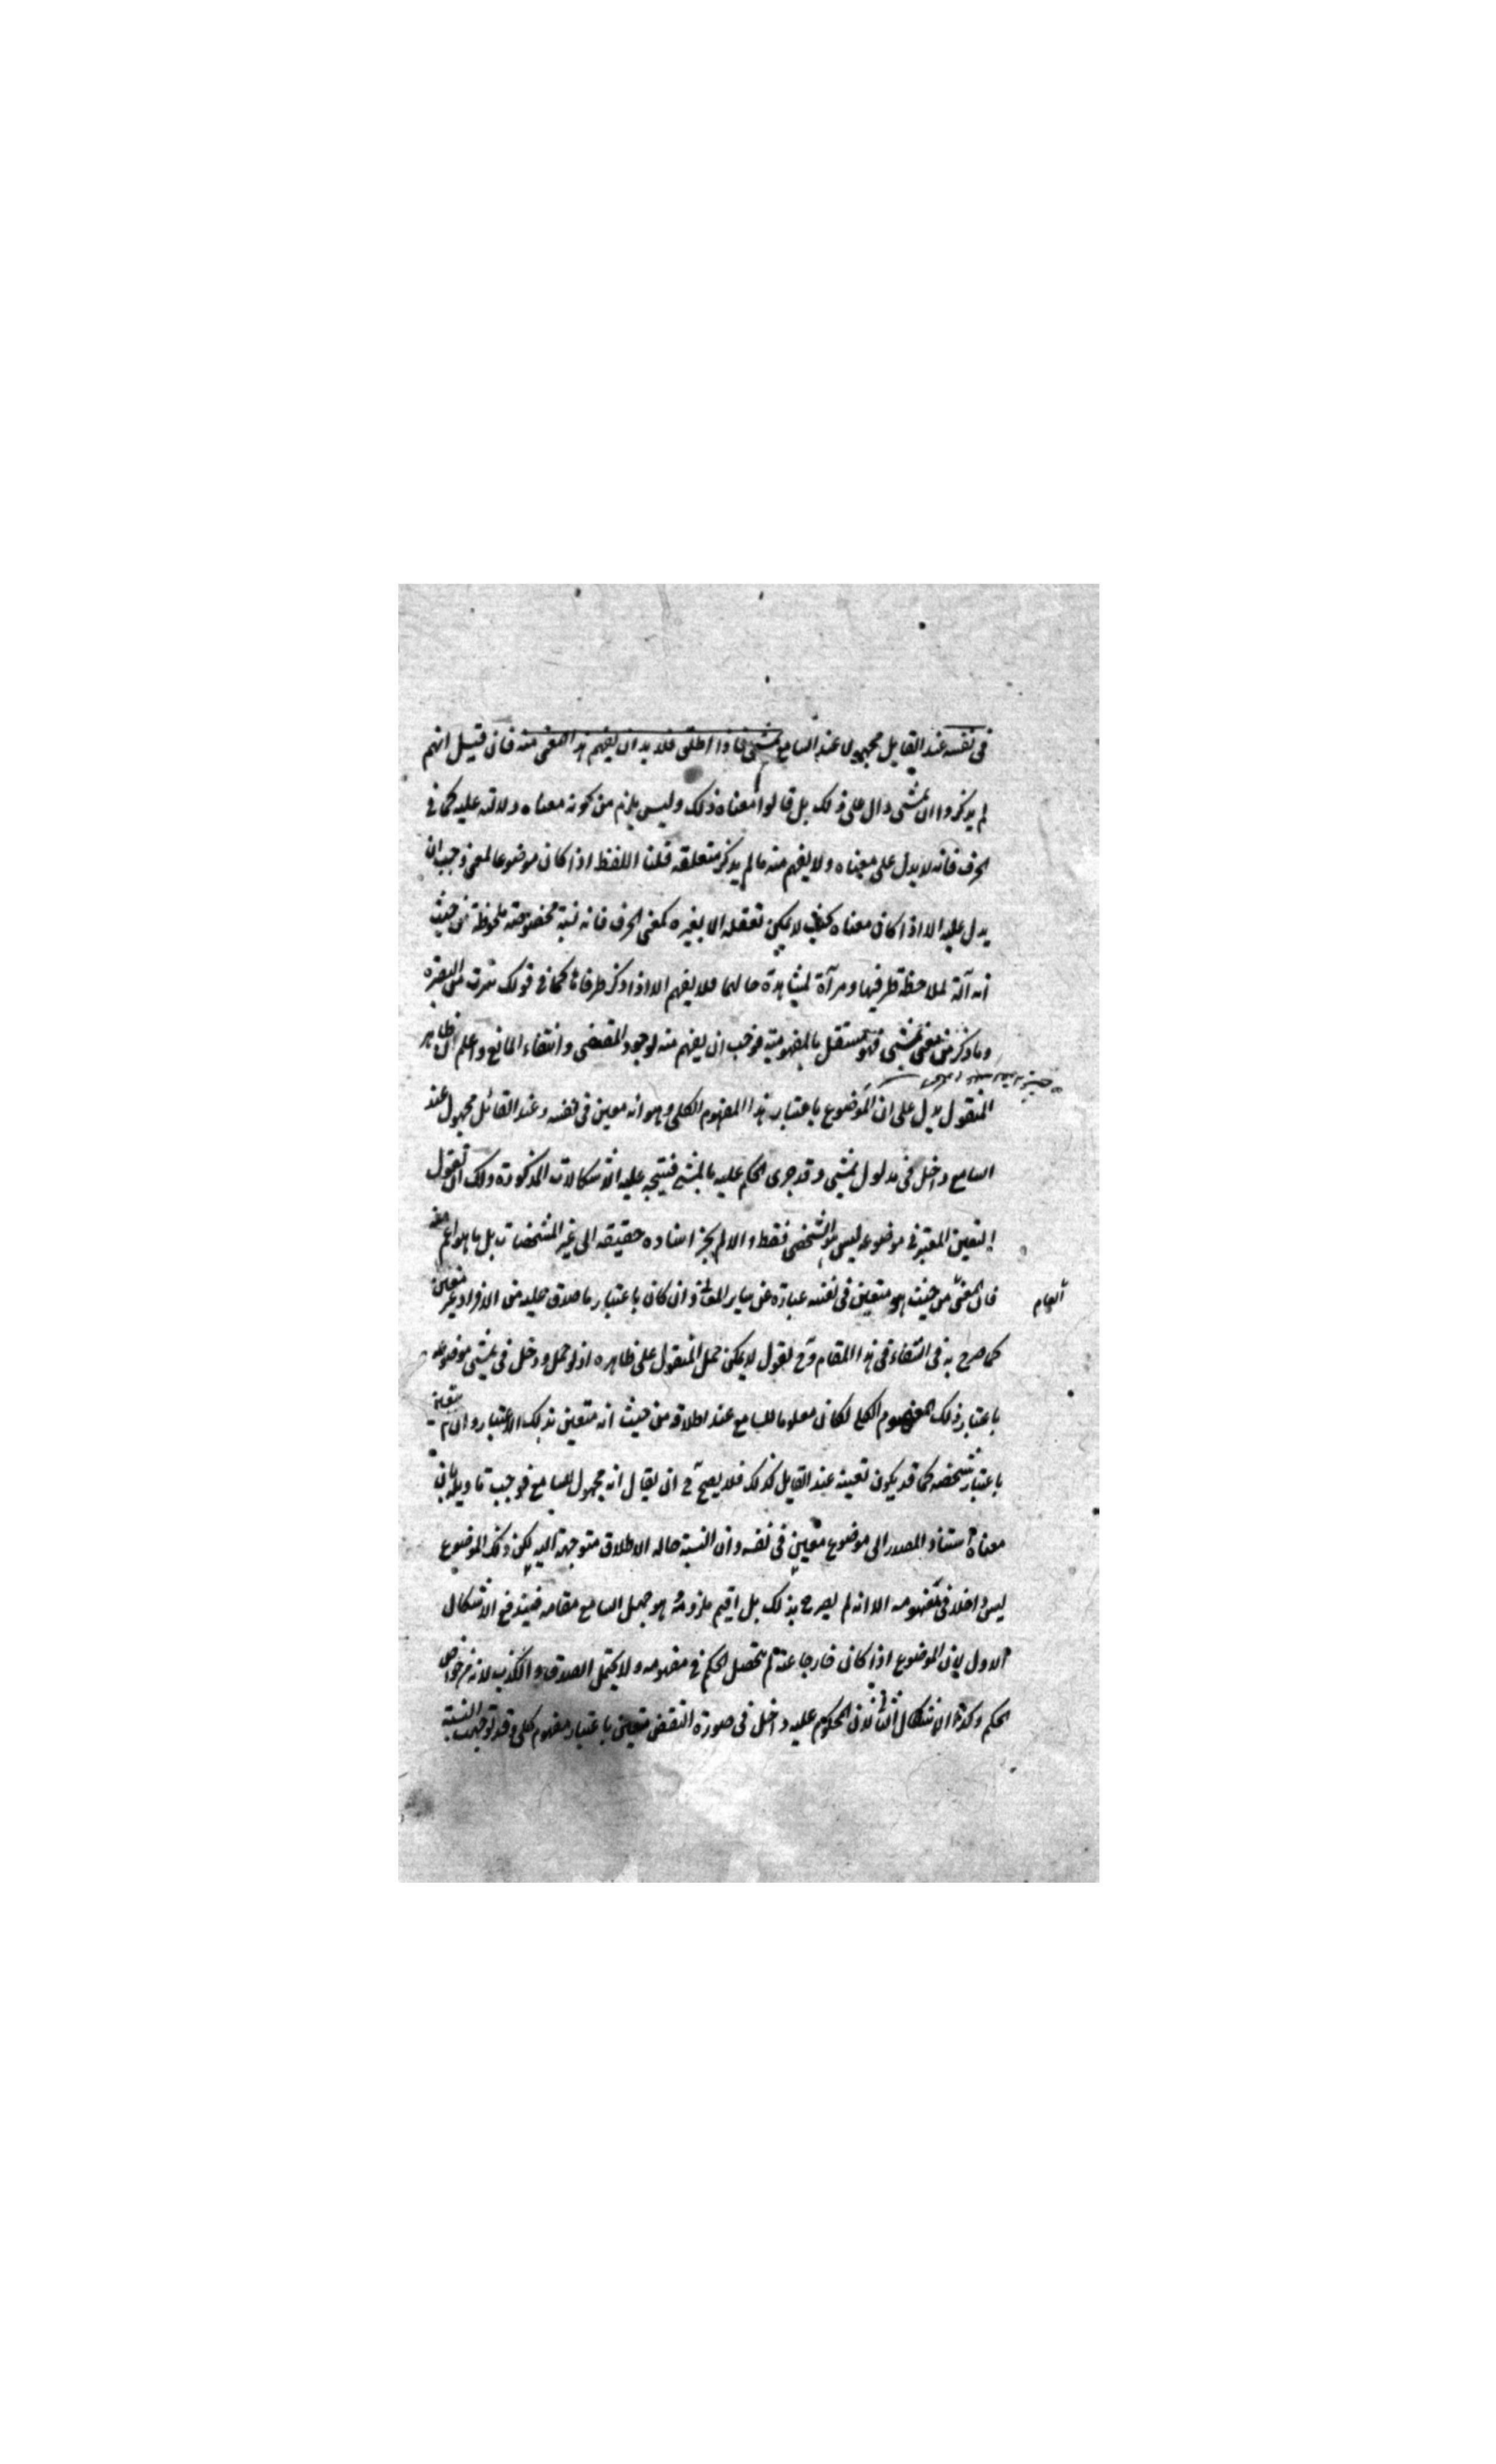 في نفسه عند القايل مجهول عند السامع يمشي فاذا اطلق فلا بد ان يفهم هذا المعنى منه فان قيل انهم
لم يذكروا ان يمشي دال على ذلك بل قالوا معناه ذلك وليس يلزم من كونه معناه دلالته عليه كما في
الحرف فانه لا يدل على معناه ولا يفهم منه ما لم يذكر متعلقه قلنا اللفظ اذا كان موضوعا لمعنى وجب ان
يدل عليه الا اذا كان معناه بحيث لا يمكن تعقله الا بغيره كمعنى الحرف فانه نسبة مخصوصة ملحوظة من حيث
انه آلة لملاحظة طرفيها ومرآة لمشاهدة حالهما فلا يفهم الا اذا ذكر طرفاها كما في قولك سرت من البصرة
وما ذكر من معنى يمشي فهو مستقل بالمفهومية فوجب ان يفهم منه لوجود المقتضى وانتفاء المانع واعلم ان ظاهر
المنقول يدل على ان الموضوع باعتبار هذا المفهوم الكلي وهو انه معين في نفسه وعند القائل مجهول عند
السامع داخل في مدلول يمشي وقد جرى الحكم عليه بالمشي فيتجه عليه الاشكالات المذكورة ولك ان تقول
التعين المعتبر في موضوعه ليس هو الشخصي فقط والا لم يجز اسناده حقيقه الى غير المشخصات بل ما هو اعم منه
فان المعنى من حيث هو متعين في نفسه عبارة عن ساير المعاني وان كان باعتبار ما صدق عليه من الافراد غير متعين
العام
كما صرح به في الشفاء في هذا المقام وح نقول لا يمكن حمل المنقول على ظاهره اذ لو حمل ودخل في يمشي موضوعه
باعتبار ذلك المفهوم الكلي لكان معلوما للسامع عند اطلاقه من حيث انه متعين بذلك الاعتبار وان لم يتعين
باعتبار شخصه كما قد يكون تعينه عند القايل كذلك فلا يصح ح ان يقال انه مجهول للسامع فوجب تاويله بان
معناه استناد المصدر الى موضوع معين في نفسه وان النسبة حاله الاطلاق متوجهة اليه لكن ذلك الموضوع
ليس داخلا في مفهومه الا انه لم يصرح بذلك بل اقيم ملزومه وهو جهل السامع مقامه فيندفع الاشكال
الاول لان الموضوع اذا كان خارجا عنه لم يتحصل الحكم في مفهومه ولا يحتمل الصدق والكذب لانه من خواص
الحكم وكذا الاشكال الثاني لان المحكوم عليه داخل في صورة النقض متعين باعتبار مفهوم كلي وقد توجهت النسبة